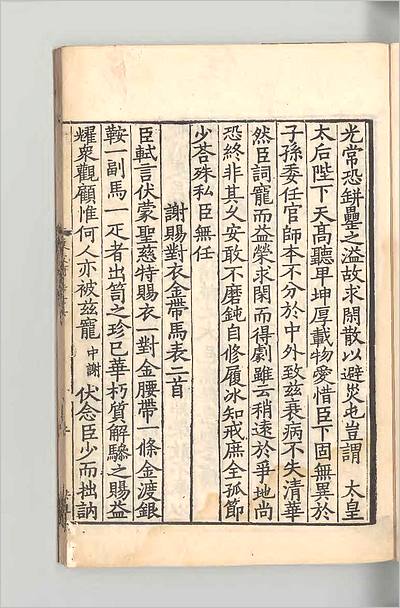 光常恐缾罍之溢故求閑散以避災屯豈謂 太皇
太后陛下天髙聽卑坤厚載物愛惜臣下固無異於
子孫委任官師本不分於中外致兹衰病不失清華
然臣詞寵而益榮求閑而得劇雖云稍逺於爭地尚
恐終非其久安敢不磨鈍自修履冰知戒庶全孤節
少荅殊私臣無任
謝賜對衣金帶馬表二首
臣軾言伏蒙聖慈特賜衣一對金腰帶一條金渡銀
鞍一副馬一疋者出笥之珍已華朽質解驂之賜益
耀衆觀顧惟何人亦被兹寵 中謝 伏念臣少而拙訥